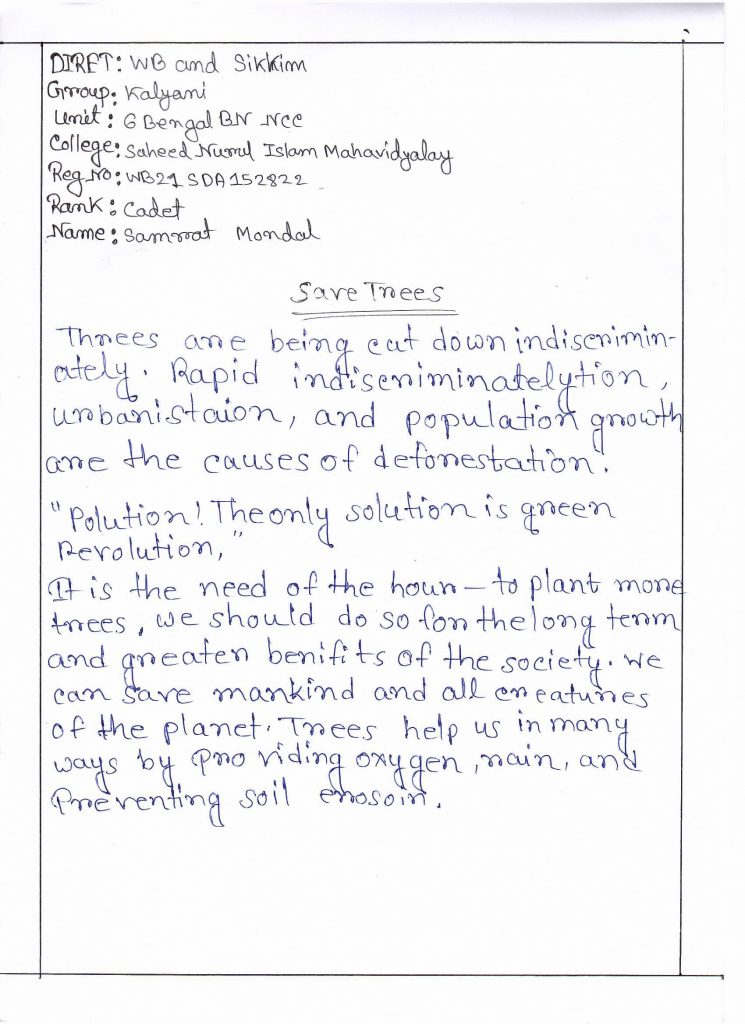 DIRET: WB and Sikkim
Group: Kalyani
Unit: 6 Bengal BN NCC
College: Saheed Nurul Islam Mahavidyalay
Reg No: WB21 SDA152822
Rank: Cadet
Name: Samrat Mondal
Save Trees
Threes are being cut down indiscrimin-
ately. Rapid indiscriminatelytion,
urbanistaion, and population growth
are the causes of deforestation.
"Polution! The only solution is green
Revolution,"
It is the need of the hour – to plant more
trees, we should do so for the long term
and greater benifits of the society. We
can save mankind and all creatures
of the planet. Trees help us in many
ways by providing oxygen, rain, and
Preventing soil erosoin.